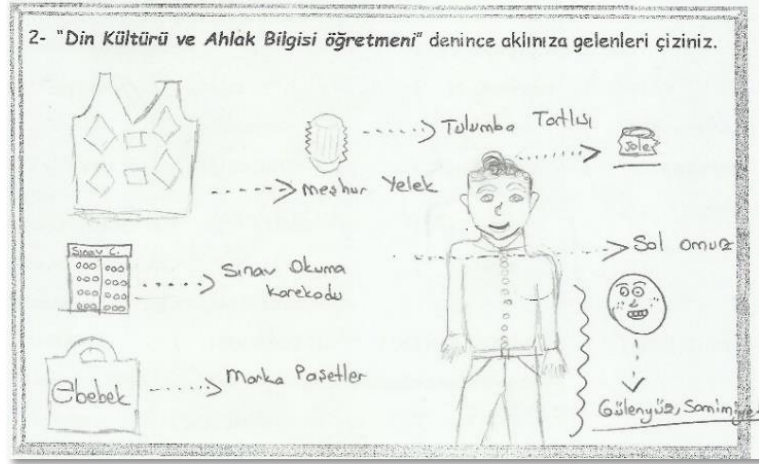 2- "Din Kültürü ve Ahlak Bilgisi öğretmeni" denince aklınıza gelenleri çiziniz.
Tulumba Tatlısı
Jole
meşhur Yelek
Sol omuz
Sınav C.
Sınav Okuma
Karekodu
ebebek
Marka Poşetler
Gülenyüz, Samimiyet